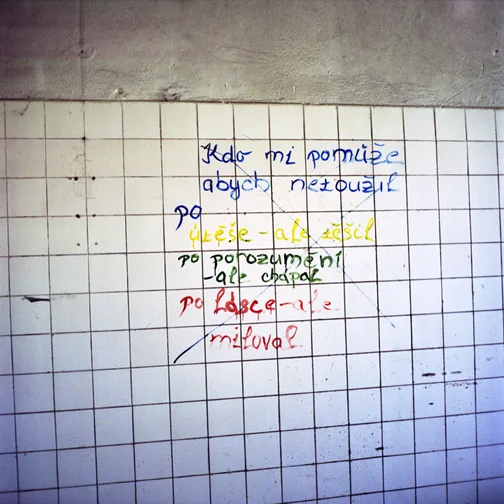 Kdo mi pomůže
abych netoužil
po
útěše - ale těšil
po porozumění
- ale chápal
po lásce - ale
miloval